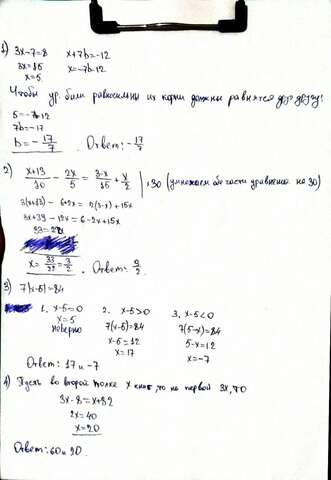 1) 3x-7=8 x+7b=-12
3x=15 x=-7b-12
x=5
Чтобы ур. были равносильны их корни должны равнятся друг другу:
5=-7b-12
7b=-17
b=-17/7 Ответ: -17/7
2) (x+13)/10 - 2x/5 = (3-x)/15 + x/2 | ·30 (умножаем обе части уравнения на 30)
3(x+13) - 6·2x = 2(3-x)+15x
3x+39-12x=6-2x+15x
33=22x
x=33/22=3/2. Ответ: 3/2.
3) 7|x-5|=84
1. x-5=0 2. x-5>0 3. x-5<0
x=5 7(x-5)=84 7(5-x)=84
неверно x-5=12 5-x=12
x=17 x=-7
Ответ: 17 и -7
4) Пусть во второй полке x книг, то на первой 3x, то
3x-8=x+32
2x=40
x=20
Ответ: 60 и 20.